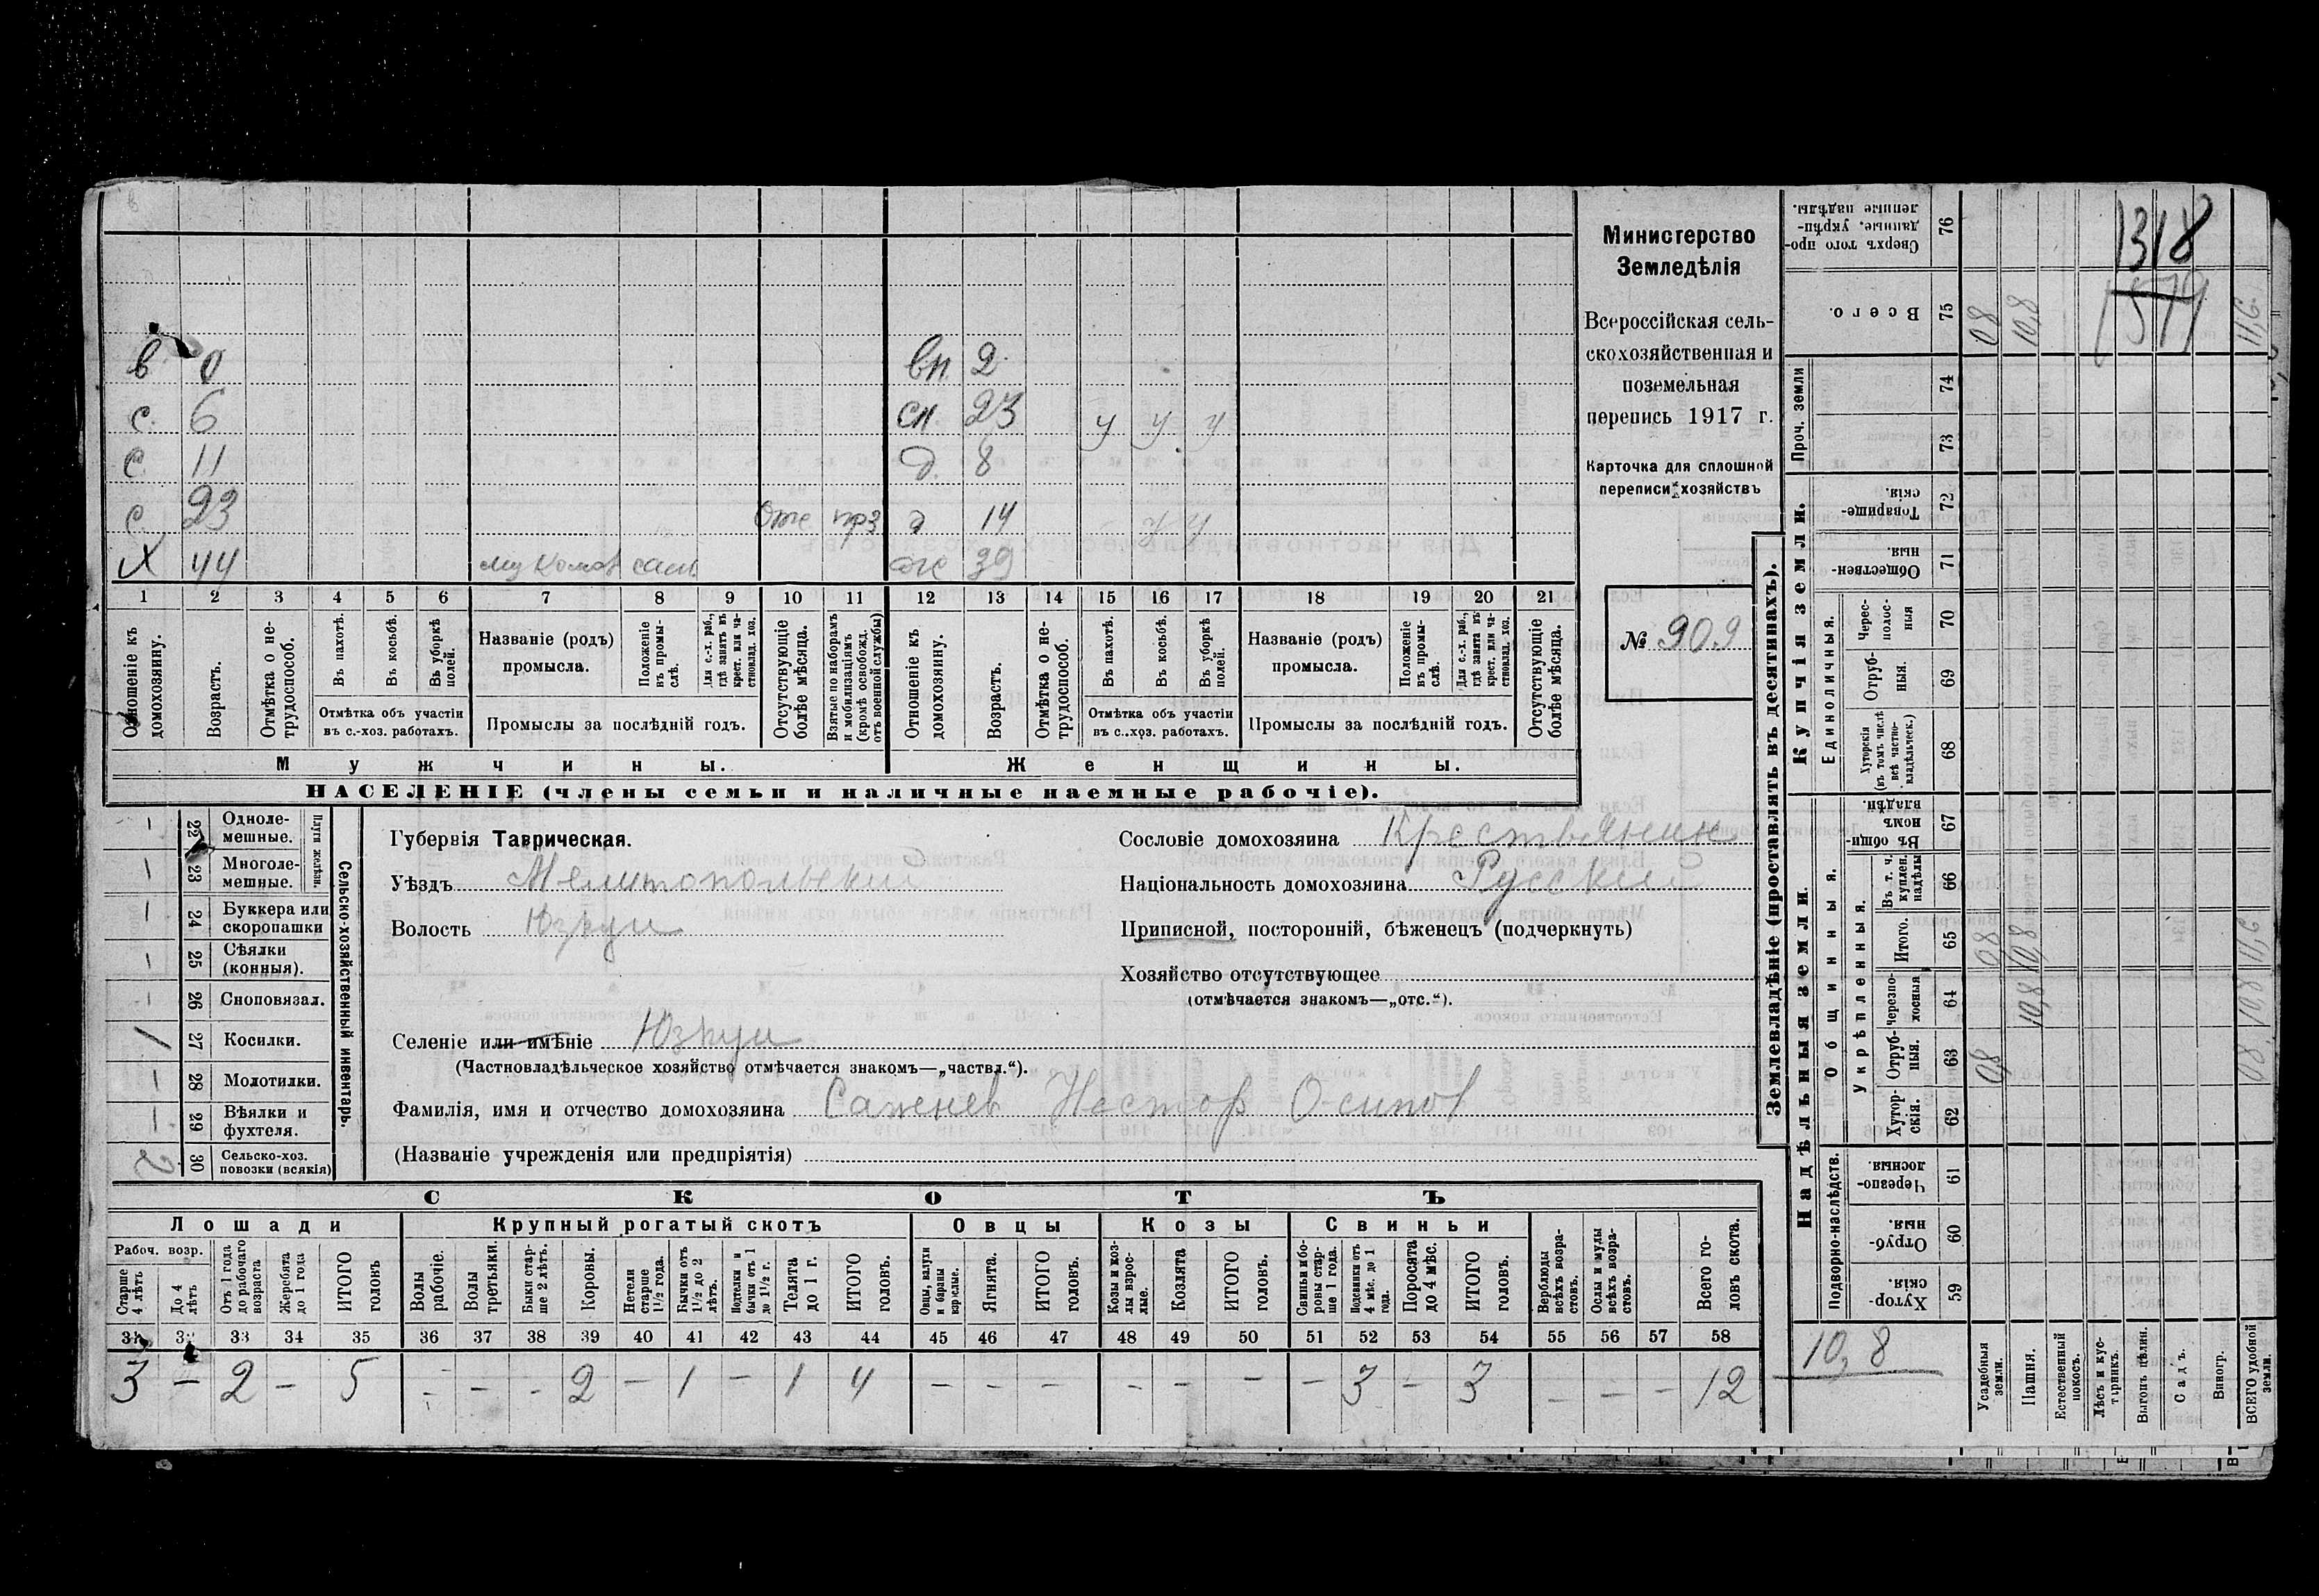 в 0 вн 2
с. 6 сн. 23 у у у
с 11 д. 8
с 23 отс прз д 14 у у
Х 44 мукомол ж 39
1 2 3 4 5 6 7 8 9 10 11 12 13 14 15 16 17 18 19 20 21
Отношеніе къ домохозяину.
Возрастъ.
Отмѣтка о не-трудоспособ.
Въ пахотѣ.
Въ косьбѣ.
Въ уборкѣ полей.
Отмѣтка объ участіи
въ с.-хоз. работахъ.
Названіе (родъ)
промысла.
Положеніе въ промы-слѣ.
Для с.-х. раб., гдѣ занятъ въ крест. или ча-стновлад. хоз.
Промыслы за послѣдній годъ.
Отсутствующіе болѣе мѣсяца.
Взятые по наборамъ и мобилизаціямъ (кромѣ освобожд. отъ военной службы)
Отношеніе къ домохозяину.
Возрастъ.
Отмѣтка о не-трудоспособ.
Въ пахотѣ.
Въ косьбѣ.
Въ уборкѣ полей.
Отмѣтка объ участіи
въ с.-хоз. работахъ.
Названіе (родъ)
промысла.
Положеніе въ промы-слѣ.
Для с.-х. раб., гдѣ занятъ въ крест. или ча-стновлад. хоз.
Промыслы за послѣдній годъ.
Отсутствующіе болѣе мѣсяца.
Мужчины. Женщины.
НАСЕЛЕНІЕ (члены семьи и наличные наемные рабочіе).
Министерство
Земледѣлія
Всероссійская сель-
скохозяйственная и
поземельная
перепись 1917 г.
Карточка для сплошной
переписи хозяйствъ
№ 909
Сельско-хозяйственный инвентарь.
Плуги желѣзн.
— 22 Одноле-мешные.
— 23 Многоле-мешные.
— 24 Буккера или скоропашки
— 25 Сѣялки (конныя).
— 26 Сноповязал.
1 27 Косилки.
— 28 Молотилки.
— 29 Вѣялки и фухтеля.
2 30 Сельско-хоз. повозки (всякія)
Губернія Таврическая.
Уѣздъ Мелитопольскій
Волость Юзкуи
Селеніе или имѣніе Юзкуи
(Частновладѣльческое хозяйство отмѣчается знакомъ—„частвл.“).
Фамилія, имя и отчество домохозяина Саженев Нестор Осипов
(Названіе учрежденія или предпріятія)
Сословіе домохозяина Крестьянин
Національность домохозяина Русскій
Приписной, посторонній, бѣженецъ (подчеркнуть)
Хозяйство отсутствующее
(отмѣчается знакомъ—„отс.“).
СКОТЪ
Лошади Крупный рогатый скотъ Овцы Козы Свиньи
Рабоч. возр.
Старше 4 лѣтъ
До 4 лѣтъ
Отъ 1 года до рабочаго возраста
Жеребята до 1 года
ИТОГО головъ
Волы рабочіе.
Волы третьяки.
Быки стар-ше 2 лѣтъ.
Коровы.
Нетели старше 1½ года.
Бычки отъ 1½ до 2 лѣтъ.
Подтелки и бычки отъ 1 до 1½ г.
Телята до 1 г.
ИТОГО головъ.
Овцы, валухи и бараны взрослые.
Ягнята.
ИТОГО головъ.
Козы и коз-лы взрос-лые.
Козлята
ИТОГО головъ.
Свиньи и бо-ровы стар-ше 1 года.
Подсвинки отъ 4 мѣс. до 1 года.
Поросята до 4 мѣс.
ИТОГО головъ.
Верблюды всѣхъ возра-стовъ.
Ослы и мулы всѣхъ возра-стовъ.
Всего го-ловъ скота.
31 32 33 34 35 36 37 38 39 40 41 42 43 44 45 46 47 48 49 50 51 52 53 54 55 56 57 58
3 — 2 — 5 — — — 2 — 1 — 1 4 — — — — — — — 3 — 3 — — — 12
Землевладѣніе (проставлять въ десятинахъ).
Купчія земли.
Надѣльныя земли.
Проч. земли
Единоличныя.
Общинныя.
Укрѣпленныя.
Подворно-наслѣдств.
Сверхъ того про-данные, укрѣп-ленные надѣлы. 76
Всего. 75 08 10,8 11,6
74
73
Товарище-скія. 72
Обществен-ныя. 71
Черес-полос-ныя 70
Отруб-ныя. 69
Хуторскія (въ томъ числѣ всѣ частно-владѣльческ.) 68
Въ общи-номъ владѣн. 67
Въ т. ч. куплен. надѣлы 66
Итого. 65 08 10,8 11,6
Черезпо-лосныя 64 10,8 10,8
Отруб-ныя. 63 08 08
Хутор-скія. 62
Черезпо-лосныя. 61
Отруб-ныя. 60
Хутор-скія. 59
10,8
Усадебныя земли.
Пашня.
Естественный покосъ.
Лѣсъ и кус-тарникъ.
Выгонъ цѣлин.
Садъ.
Виногр.
ВСЕГО удобной земли.
1318
1579